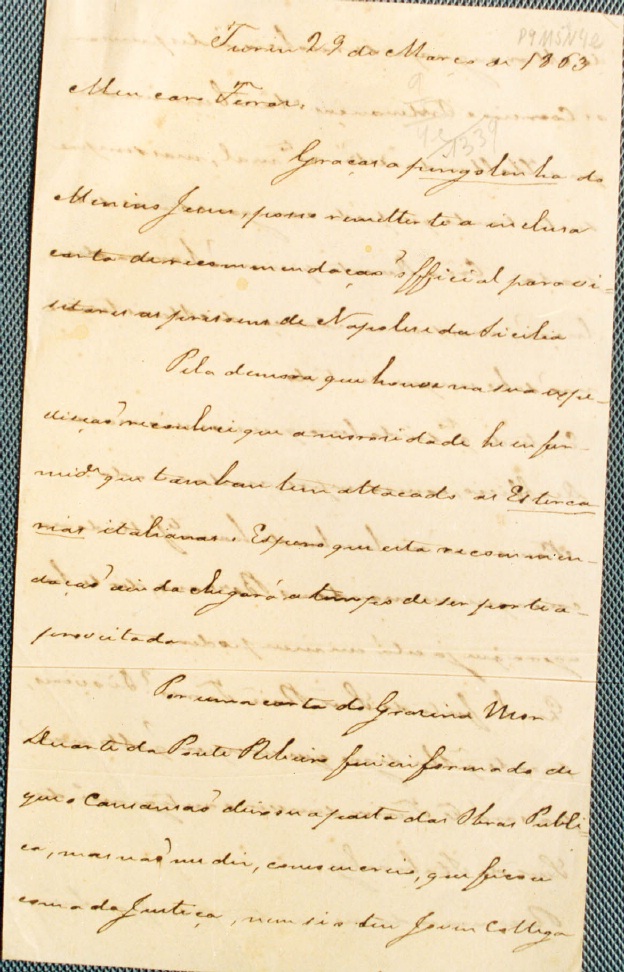 P9 M5N42
Turin 29 de Março de 1863
Meu caro Ferraz,
1339
Graças a pingolenha do
Menino Jesus, posso remetter te a inclusa
carta de recommendação official para vi-
sitares as prisoens de Napoles e da Sicilia
Pela demora que houve na sua expe-
dicção reconheci que a morosidade he enfer-
mide que tambem tem attacado as Esterca
rias italianas. Espero que esta recommen-
dação ainda chegará a tempo de ser por te a-
proveitada
Por uma carta do Gracind Mor
Duarte da Ponte Ribeiro fui informado de
que o Cansansão deixou a pasta das Obras Publi-
ca, mas não me diz, como creio, que ficou
com a da Justiça, nem si o teu Joven Collega